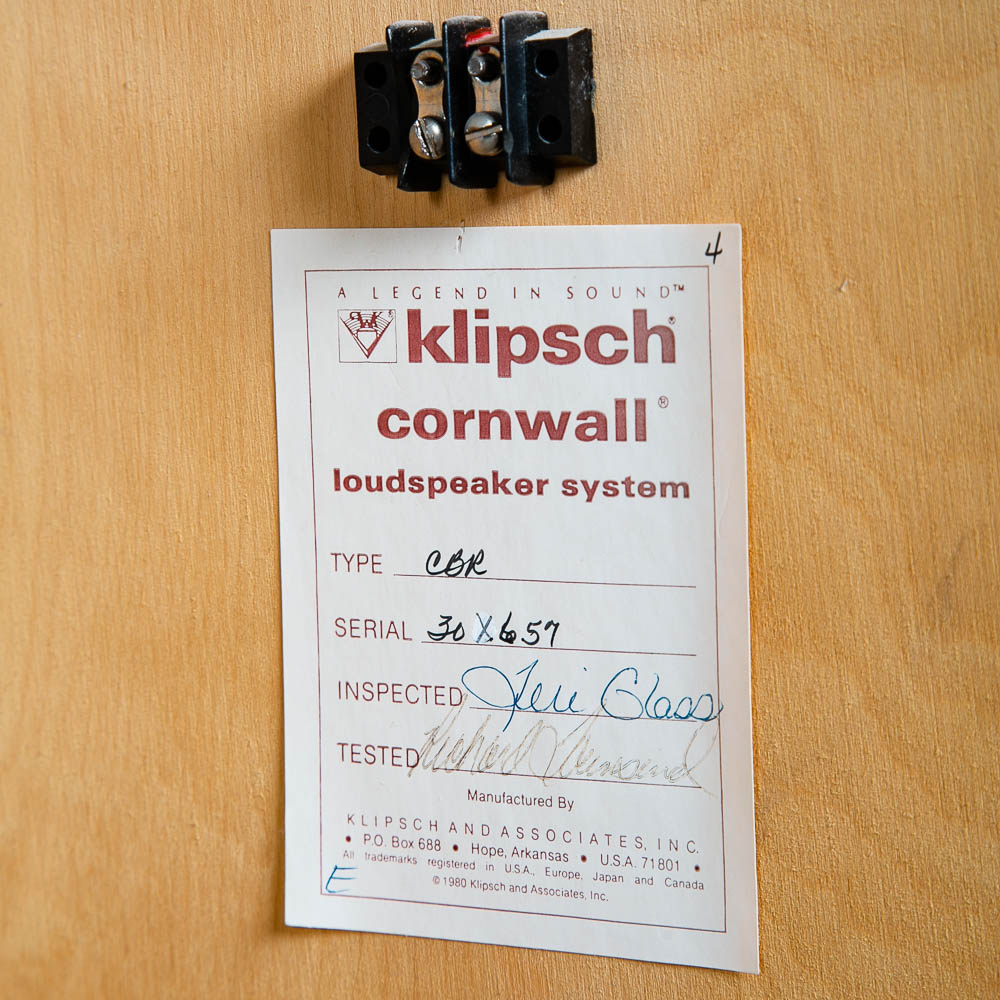 4
A LEGEND IN SOUND™
PWK ® klipsch®
cornwall®
loudspeaker system
TYPE CBR
SERIAL 30X657
INSPECTED Teri Glass
TESTED Richard Townsend
Manufactured By
KLIPSCH AND ASSOCIATES, INC.
• P.O. Box 688 • Hope, Arkansas • U.S.A. 71801 •
All trademarks registered in U.S.A., Europe, Japan and Canada
© 1980 Klipsch and Associates, Inc.
E